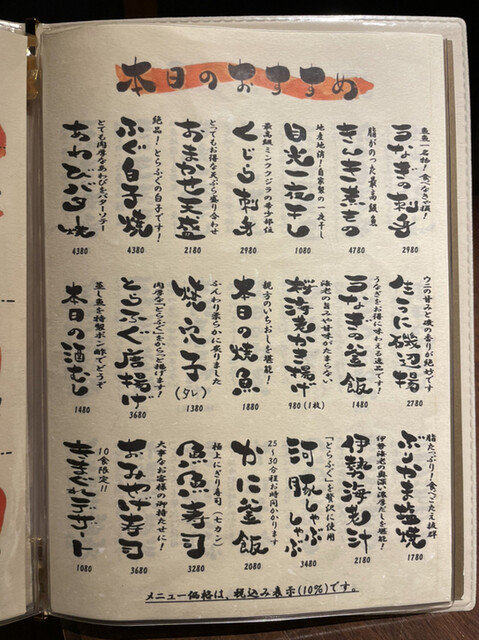 本日のおすすめ
魚魚一名物！食べなきゃ損！
うなぎの刺身
2980
脂がのった最高級魚
きんき煮もの
4780
地産地消！自家製の一夜干し
目光一夜干し
1080
最高級ミンククジラの希少部位
くじら刺身
2980
とってもお得な天ぷら盛り合わせ
おまかせ天盛
2180
絶品！とらふぐの白子です！
ふぐ白子焼
4380
とても肉厚なあわびをバターソテー
あわびバター焼
4380
ウニの甘みと磯の香りが絶妙です
生うに磯辺揚
2780
うなぎをお得に味わえる逸品です！
うなぎの釜飯
1480
海老の旨みや甘味がたまらない
桜海老かき揚げ
980(1枚)
親方のいちおしを堪能！
本日の焼魚
1880
ふんわり柔らかに炙りました
焼穴子(タレ)
1380
肉厚な「とらふぐ」をからっと揚げます！
とらふぐ唐揚げ
3680
蒸し魚を特製ポン酢でどうぞ
本日の酒むし
1480
脂たっぷり！食べごたえ抜群
ぶりかま塩焼
1780
伊勢海老の奥深い濃厚だしを堪能！
伊勢海老汁
2180
「とらふぐ」を贅沢に使用
河豚しゃぶしゃぶ
3480
25〜30分程お時間かかります
かに釜飯
2080
極上にぎり寿司（七カン）
魚魚寿司
3280
大事なお客様の御持たせに！
おみやげ寿司
3680
10食限定!!
きまぐれデザート
1080
メニュー価格は、税込み表示(10%)です。